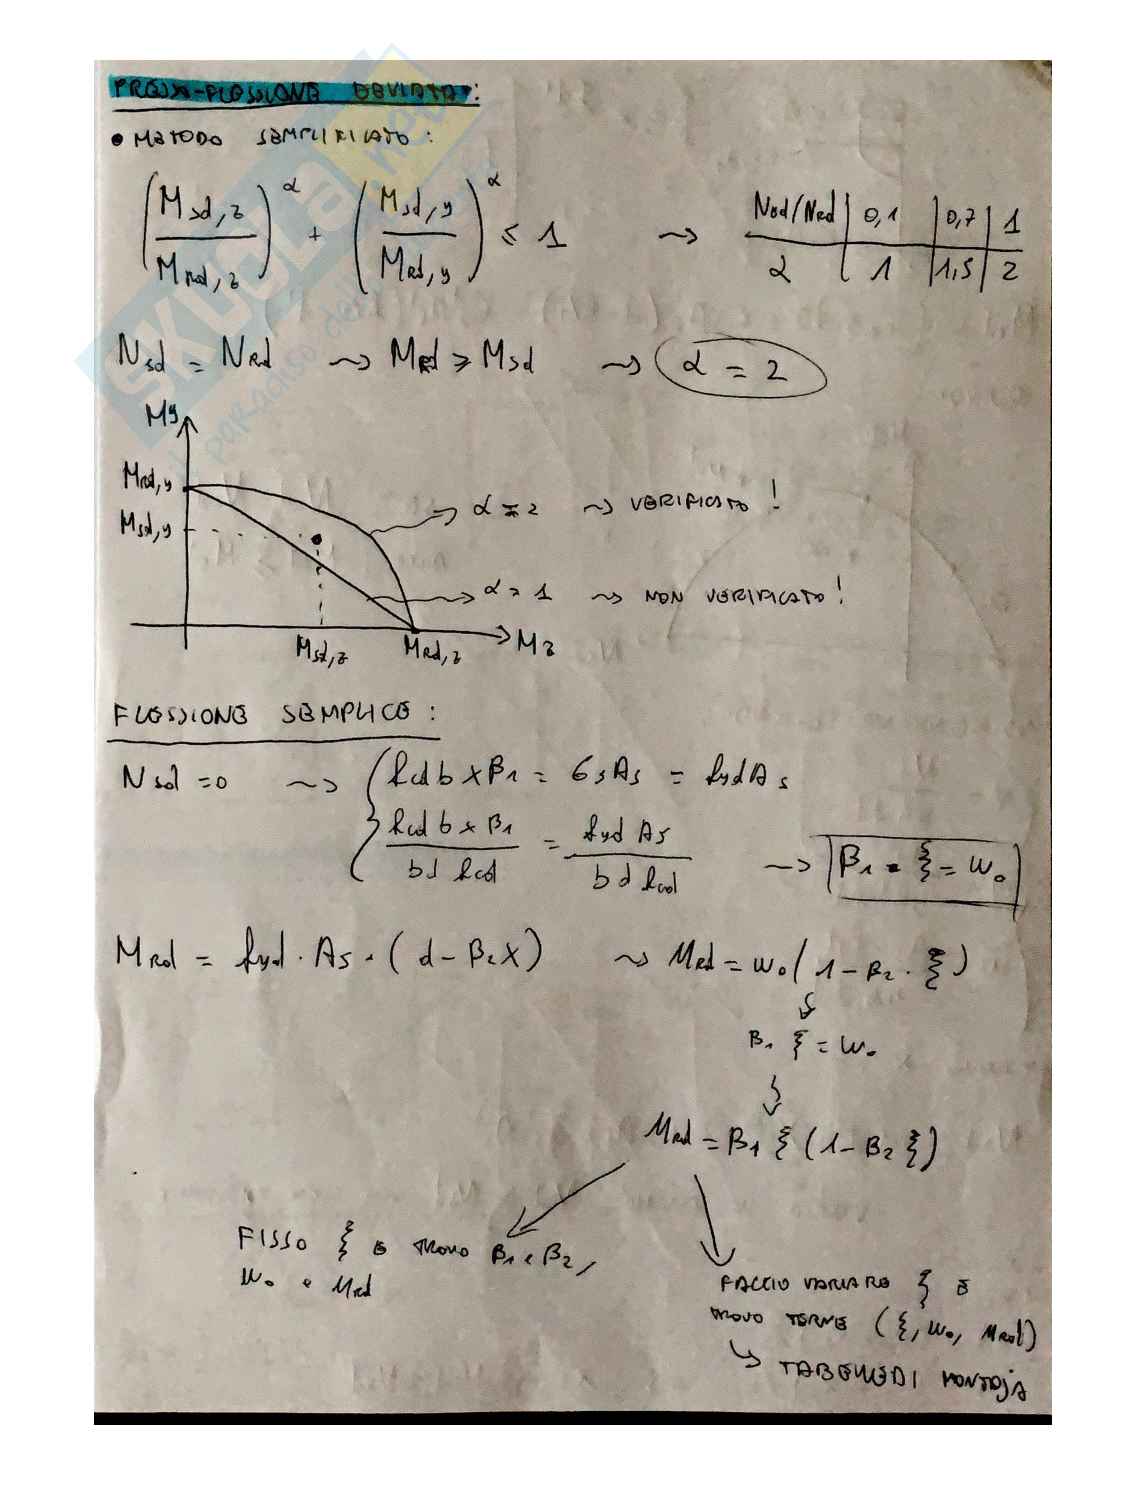 PRESSO-FLESSIONE DEVIATA:
• METODO SEMPLIFICATO:
(Msd,z / Mrd,z)^α + (Msd,y / MRd,y)^α ≤ 1 ⇝ Nsd/NRd | 0,1 | 0,7 | 1
α | 1 | 1,5 | 2
Nsd = NRd ⇝ MRd ≥ Msd ⇝ α = 2
My
MRd,y
α = 2 ⇝ VERIFICATO!
Msd,y
α = 1 ⇝ NON VERIFICATO!
Msd,z MRd,z Mz
FLESSIONE SEMPLICE:
Nsd = 0 ⇝ { fcd b x β1 = σs As = fyd As
fcd b x β1 / b d fcd = fyd As / b d fcd ⇝ β1 · ξ = ω0
MRd = fyd · As · (d - β2 x) ⇝ μRd = ω0 (1 - β2 · ξ)
β1 ξ = ω0
μRd = β1 ξ (1 - β2 ξ)
FISSO ξ E TROVO β1 e β2,
ω0 e μRd
FACCIO VARIARE ξ E
TROVO TERNE (ξ, ω0, μRd)
↳ TABELLE DI
SKUOLA.net
il paradiso dello